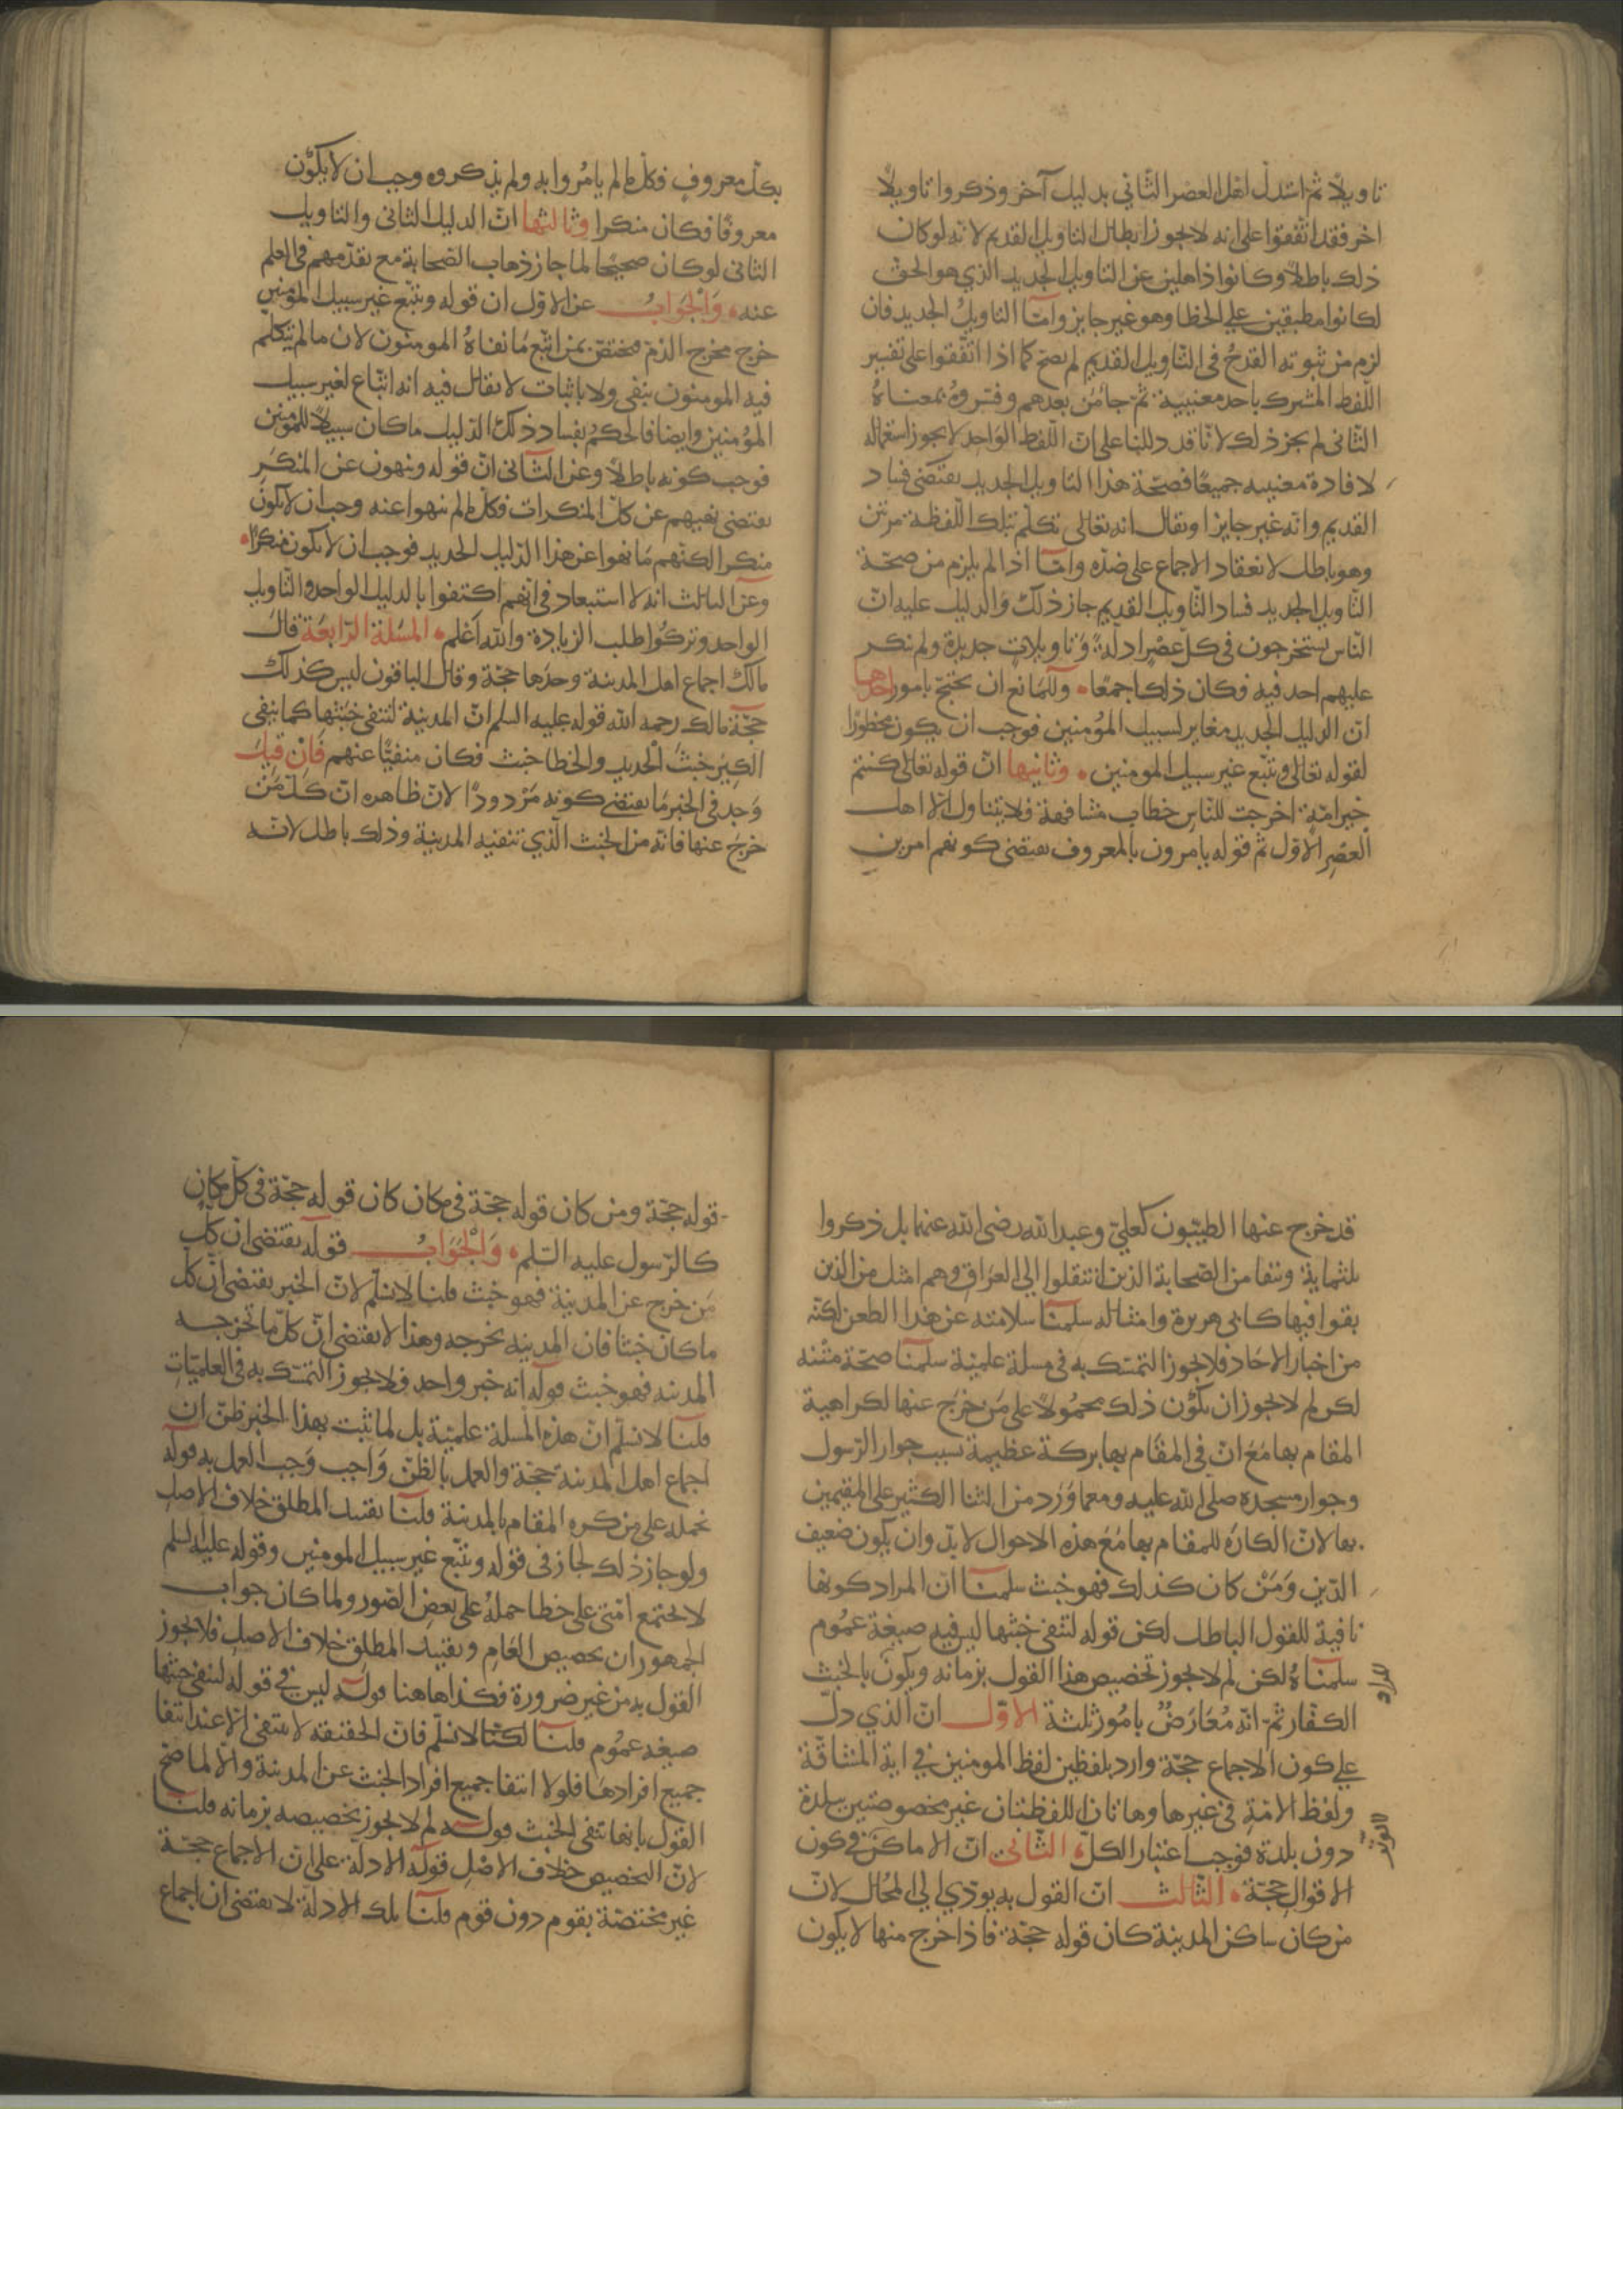 تاويلا ثم استدل اهل العصر الثاني بدليل آخر وذكروا تاويلا
اخر فقد اتفقوا على انه لا يجوز ابطال التاويل القديم لانه لو كان
ذلك باطلا وكانوا ذاهلين عن التاويل الجديد الذي هو الحق
لكانوا مطبقين علي الخطا وهو غير جايز وامّا التاويل الجديد فان
لزم من ثبوته القدح في التاويل القديم لم يصح كما اذا اتفقوا على تفسير
اللفظ المشترك باحد معنييه ثم جا من بعدهم وفسروه بمعناه
الثاني لم يجز ذلك لانا قد دللنا على انّ اللفظ الواحد لا يجوز استعماله
لافادة معنييه جميعًا فصحّة هذا التاويل الجديد يقتضي فساد
القديم وانه غير جايز او يقال انه تعالى تكلم بتلك اللفظة مرتين
وهو باطل لانعقاد الاجماع على ضدّه وامّا اذا لم يلزم من صحّة
التاويل الجديد فساد التاويل القديم جاز ذلك والدليل عليه انّ
الناس يستخرجون في كلّ عصر ادلة وتاويلات جديدة ولم ينكر
عليهم احد فيه فكان ذلك اجماعًا وللمانع ان يحتج بامور احدها
ان الدليل الجديد مغاير لسبيل المؤمنين فوجب ان يكون محظورًا
لقوله تعالى ويتبع غير سبيل المومنين وثانيها انّ قوله تعالى كنتم
خير امّة اخرجت للناس خطاب مشافهة فلا يتناول الّا اهل
العصر الاوّل ثم قوله يامرون بالمعروف يقتضي كونهم امرين
بكلّ معروف فكلّ ما لم يامروا به ولم يذكروه وجب ان لا يكون
معروفًا فكان منكرا وثالثها انّ الدليل الثاني والتاويل
الثاني لو كان صحيحًا لما جاز ذهاب الصحابة مع تقدّمهم في العلم
عنه والجواب عن الاوّل ان قوله ويتبع غير سبيل المومنين
خرج مخرج الذمّ مختصّ بمن اتبع ما نفاه المومنون لان ما لم يتكلّم
فيه المومنون بنفي ولا باثبات لا يقال فيه انه اتباع لغير سبيل
المؤمنين وايضا فالحكم بفساد ذلك الدليل ما كان سبيلا للمؤمنين
فوجب كونه باطلا وعن الثاني انّ قوله وينهون عن المنكر
يقتضي نهيهم عن كلّ المنكرات فكلّ ما لم ينهوا عنه وجب ان لا يكون
منكرا لكنهم ما نهوا عن هذا الدليل الجديد فوجب ان لا يكون منكرًا
وعن الثالث انه لا استبعاد في انهم اكتفوا بالدليل الواحد والتاويل
الواحد وتركوا طلب الزيادة والله اعلم المسئلة الرابعة قال
مالك اجماع اهل المدينة وحدها حجّة وقال الباقون ليس كذلك
حجّة مالك رحمه الله قوله عليه السلم انّ المدينة لتنفي خبثها كما ينفي
الكير خبث الحديد والخطا خبث فكان منفيًا عنهم فان قيل
وجد في الخبر ما يقتضي كونه مردودًا لانّ ظاهره انّ كلّ من
خرج عنها فانه من الخبث الّذي تنفيه المدينة وذلك باطل لانه
قد خرج عنها الطيبون كعليّ وعبد الله رضي الله عنهما بل ذكروا
ثلثماية ونيفا من الصحابة الذين انتقلوا الي العراق وهم امثل من الذين
بقوا فيها كابي هريرة وامثاله سلمنا سلامته عن هذا الطعن لكنّه
من اخبار الاحاد فلا يجوز التمسّك به في مسلة علميّة سلمنا صحّة متنه
لكن لم لا يجوز ان يكون ذلك محمولا على من خرج عنها لكراهية
المقام بها مع انّ في المقام بها بركة عظيمة بسبب جوار الرسول
وجوار مسجده صلي الله عليه ومع ما ورد من الثنا الكثير على المقيمين
بها لانّ الكاره للمقام بها مع هذه الاحوال لا بدّ وان يكون ضعيف
الدّين ومن كان كذلك فهو خبث سلمنا ان المراد كونها
نافية للقول الباطل لكن قوله لتنفي خبثها ليس فيه صيغة عموم
سلمناه لكن لم لا يجوز تخصيص هذا القول بزمانه ويكون بالخبث
الكفّار ثم انّه معارض بامور ثلثة الاوّل انّ الذي دلّ
علي كون الاجماع حجّة وارد بلفظين لفظ المومنين في اية المشاقّة
ولفظ الامّة في غيرها وهاتان اللفظتان غير مخصوصتين ببلدة
دون بلدة فوجب اعتبار الكلّ الثاني انّ الاماكن في كون
الاقوال حجّة الثالث انّ القول به يودّي الي المحال لانّ
من كان ساكن المدينة كان قوله حجّة فاذا خرج منها لا يكون
قوله حجّة ومن كان قوله حجّة في مكان كان قوله حجّة في كلّ مكان
كالرسول عليه السلم والجواب قوله يقتضي ان كلّ
من خرج عن المدينة فهو خبث قلنا لا نسلّم لانّ الخبر يقتضي انّ كلّ
ما كان خبثا فان المدينه تخرجه وهذا لا يقتضي انّ كلّ ما تخرجه
المدينه فهو خبث قوله انه خبر واحد فلا يجوز التمسّك به في العلميّات
قلنا لا نسلّم انّ هذه المسلة علميّة بل لما ثبت بهذا الخبر ظنّ ان
اجماع اهل المدينة حجّة والعمل بالظنّ واجب وجب العمل به قوله
نحمله على من كره المقام بالمدينة قلنا تقييد المطلق خلاف الاصل
ولو جاز ذلك لجاز في قوله ويتبع غير سبيل المومنين وقوله عليه السلم
لا تجتمع امّتي على خطا حمله على بعض الصور ولما كان جواب
الجمهور ان تخصيص العام وتقييد المطلق خلاف الاصل فلا يجوز
القول به من غير ضرورة فكذا هاهنا قوله ليس في قوله لتنفي خبثها
صيغه عموم قلنا لكنّا لا نسلّم فانّ الحقيقه لا تنتفي الّا عند انتفا
جميع افرادها فلولا انتفا جميع افراد الخبث عن المدينة والّا لما صحّ
القول بانها تنفي الخبث قوله لم لا يجوز تخصيصه بزمانه قلنا
لانّ التخصيص خلاف الاصل قوله الادلّة على انّ الاجماع حجّة
غير مختصّة بقوم دون قوم قلنا تلك الادلّة لا يقتضي ان اجماع